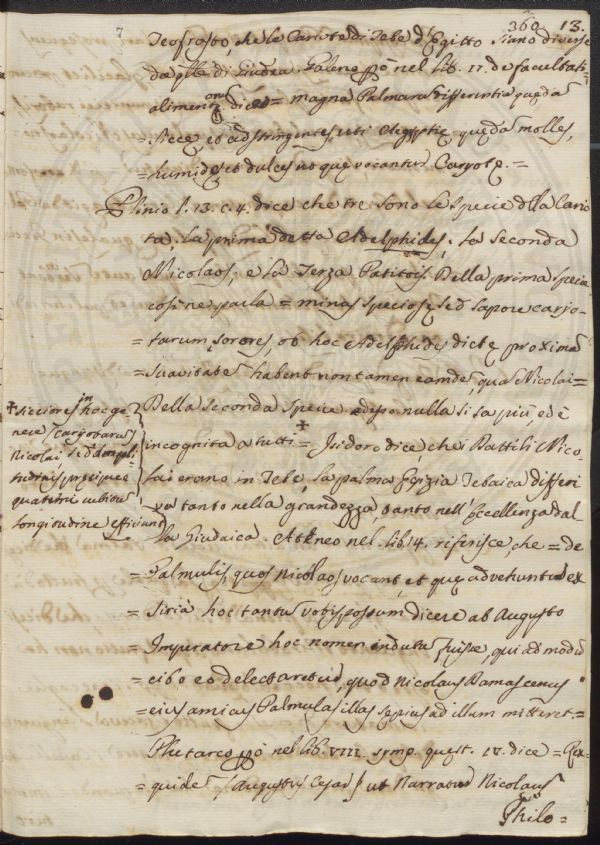 7
360 13.
Teofrasto, che le Cariote di Tebe d'Egitto siano diverse
da qlle di Giudea. Galeno ppō nel lib. 11. de facultati=
aliment. dice = magna Palmarū differentia quędā
siccę, et adstringentes, uti Aegyptię: quędā molles,
= humidę, et dulces ut quę vocantur Caryotę. =
Plinio l. 13. c. 4. dice che tre sono le specie dlla Cario
ta, la prima detta Adelphides, la seconda
Nicolaos, e la Terza Patitois. Della prima specie
così ne parla = minus speciosę sed sapore caryo-
= tarum sorores, ob hoc Adelphides dictę proximā
= suavitatē habent non tamen eamdē, quā Nicolai =
Della seconda specie adesso nulla si sa più, ed è
incognita a tutti + Isidoro dice, che i Dattili Nico-
lai erano in Tebe, la palma Egizia Tebaica differi
va tanto nella grandezza, quanto nell'Eccellenza dal
la Giudaica. Ateneo nel lib. 14. riferisce che = de
= Palmulis, quos Nicolaos vocant, et quę advehuntur ex
= Siria hoc tantū vobis possum dicere ab Augusto
= Imperatore hoc nomen indutū fuisse, qui ad modū
= cibo eo delectaretur, quod Nicolaus Damascenus
= eius amicus Palmulas illas sępius ad illum mitteret. =
Plutarco ppō nel lib. VIII. symp. quęst. IV. dice = Rex
= quidē (Augustus Cęsar) ut narratur Nicolaus
Philo=
+ sicciores in hoc ge
nere caryotarū
Nicolai sed ampli
tudinis pręcipuę
quaterni cubitū
longitudine efficiunt